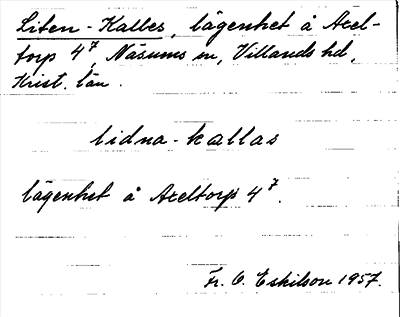 Liten-Kalles, lägenhet å Axel-
torp 4⁷, Näsums sn, Villands hd,
Krist. län.
lidna-kallas
lägenhet å Axeltorp 4⁷.
Fr. O. Eskilson 1957.